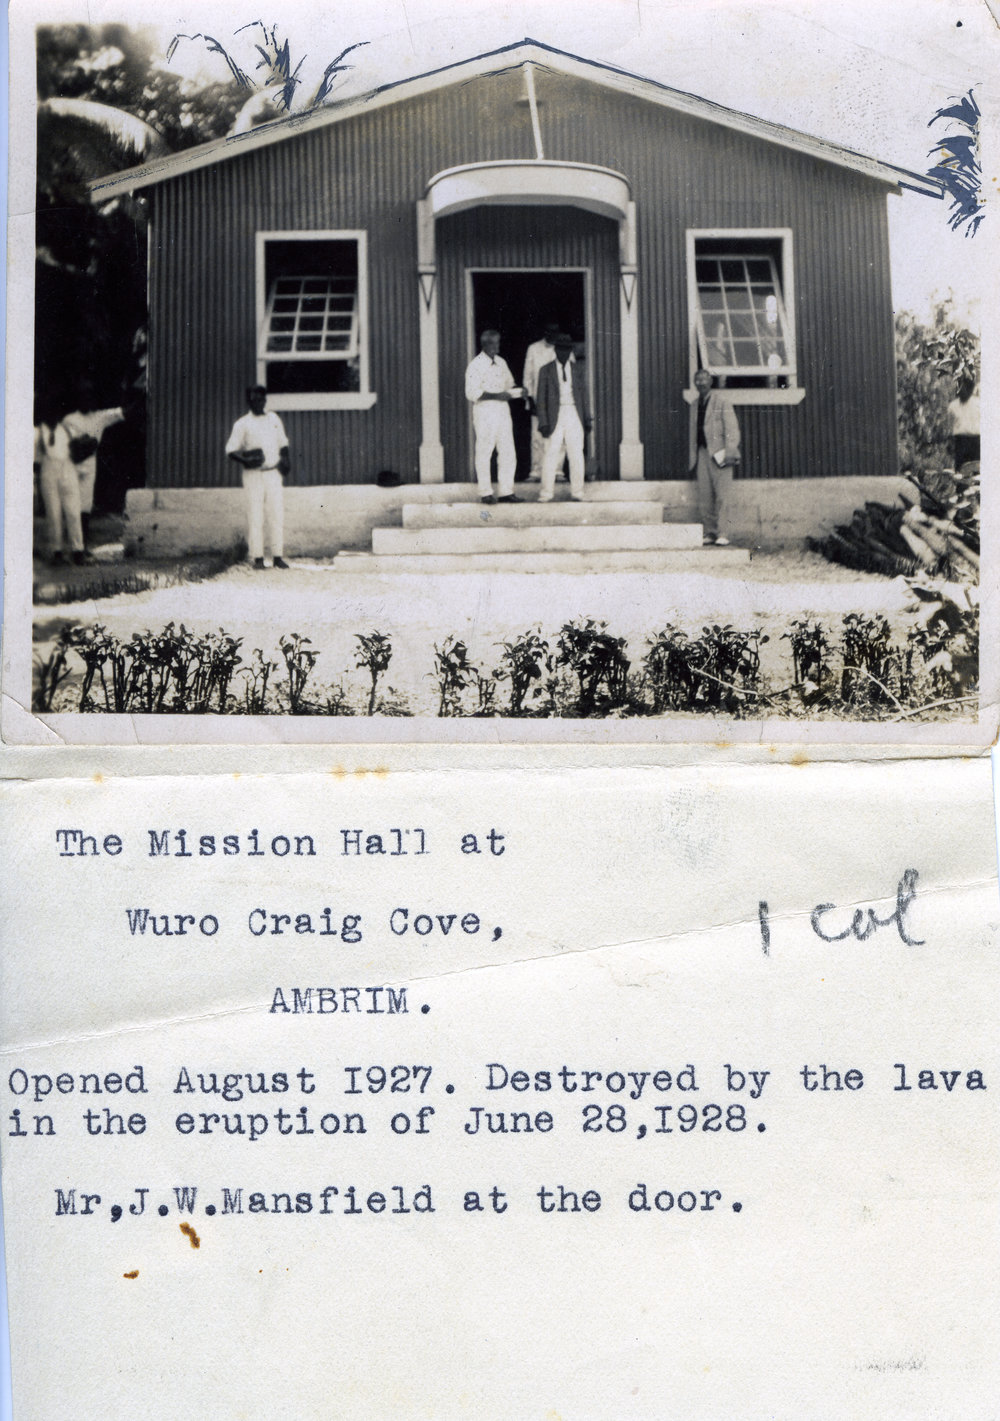 The Mission Hall at
Wuro Craig Cove,
1 col
AMBRIM.
Opened August I927. Destroyed by the lava
in the eruption of June 28,I928.
Mr,J.W.Mansfield at the door.